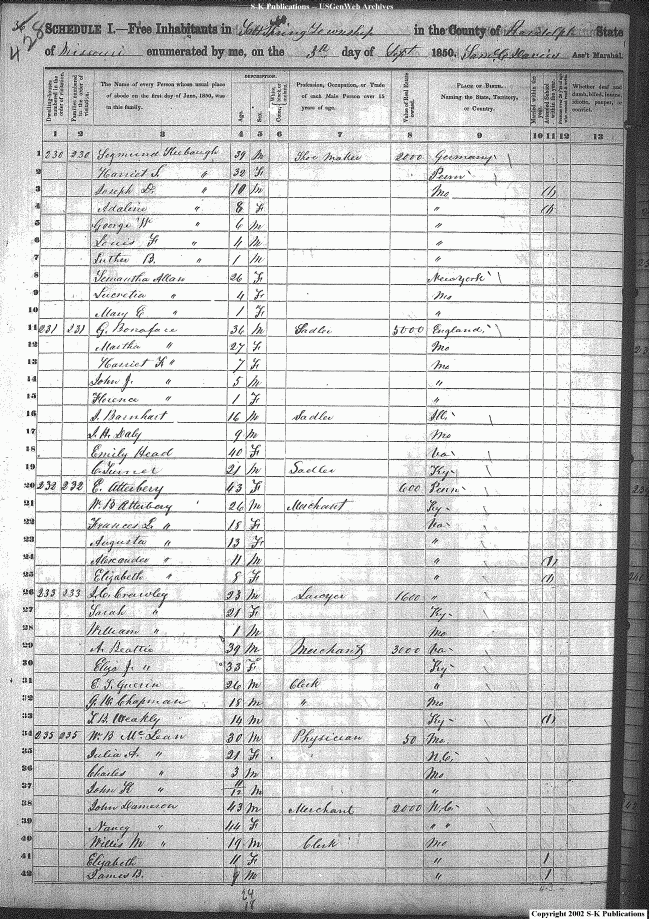 S-K Publications – USGenWeb Archives
428
SCHEDULE I.—Free Inhabitants in Township in the County of Randolph State
of Missouri enumerated by me, on the 3d day of Sept 1850. Ass't Marshal.
Dwelling-houses numbered in the order of visitation. Families numbered in the order of visitation. The Name of every Person whose usual place of abode on the first day of June, 1850, was in this family. DESCRIPTION. Age. Sex. Profession, Occupation, or Trade of each Male Person over 15 years of age. Value of Real Estate owned. PLACE OF BIRTH. Naming the State, Territory, or Country. Whether deaf and dumb, blind, insane, idiotic, pauper, or convict.
1 2 3 4 5 6 7 8 9 10 11 12 13
1 230 230 Segmund 39 M Shoe Maker 2000 Germany
2 Harriet S. " 32 F Penn
3 Joseph D. " 10 M Mo 1
4 Adaline " 8 F " 1
5 George W " 6 M "
6 Louis F " 4 M "
7 Luther B. " 1 M "
8 Semantha Allan 26 F New York
9 Lucretia " 4 F Mo
10 Mary C " 1 F "
11 231 231 G. Bonaface 36 M Sadler 5000 England
12 Martha " 27 F Mo
13 Harriet K " 7 F Mo
14 John J. " 5 M "
15 Florence " 1 F "
16 Barnhart 16 M Sadler Ill
17 Daly 9 M Mo
18 Emily Head 40 F Va
19 C. Turner 21 M Sadler Ky
20 232 232 E. Atterbery 43 F 600 Penn
21 W. B Atterbery 26 M Merchant Ky
22 Frances L. " 18 F Va
23 Augusta " 13 F "
24 Alexander " 11 M " 1
25 Elizabeth " 8 F " 1
26 233 233 Crawley 23 M Lawyer 1600 "
27 Sarah " 21 F Ky
28 William " 1 M Mo
29 A. Beattie 39 M Merchant 3000 Va
30 Eliza J. " 33 F Ky
31 Guerin 26 M Clerk "
32 G. W. Chapman 18 M " Mo
33 Weakly 14 M Ky 1
34 235 235 W. B McLean 30 M Physician 50 Mo
35 Julia A. " 21 F N.C.
36 Charles " 3 M Mo
37 John K " 11/12 M "
38 John Dameron 43 M Merchant 2000 N.C.
39 Nancy " 44 F " "
40 Willis M " 19 M Clerk Mo
41 Elizabeth 11 F " 1
42 James B. 9 M " 1
24
18
Copyright 2002 S-K Publications